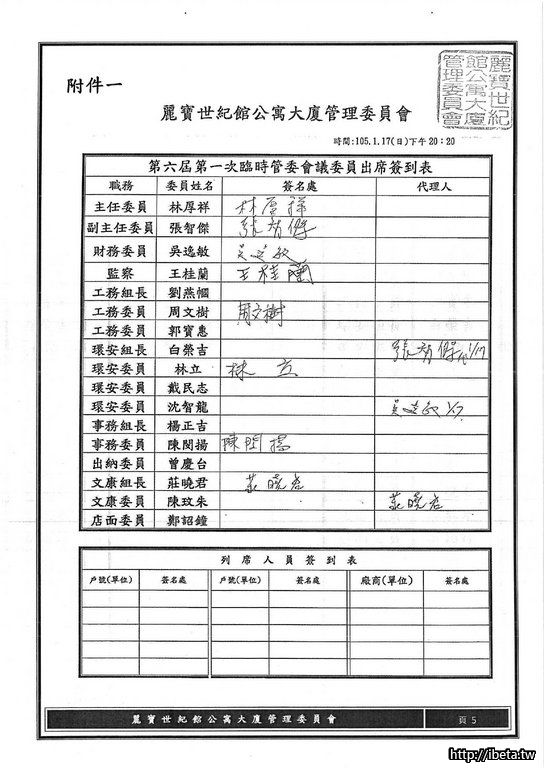 附件一
麗寶世紀館公寓大廈管理委員會
麗寶世紀
館公寓大廈
管理委員會
時間:105.1.17(日)下午20:20
第六屆第一次臨時管委會議委員出席簽到表
職務 委員姓名 簽名處 代理人
主任委員 林厚祥 林厚祥
副主任委員 張智傑 張智傑
財務委員 吳逸敏 吳逸敏
監察 王桂蘭 王桂蘭
工務組長 劉燕慖
工務委員 周文樹 周文樹
工務委員 郭寶惠
環安組長 白榮吉 張智傑代1/17
環安委員 林立 林立
環安委員 戴民志
環安委員 沈智龍 吳逸敏 1/17
事務組長 楊正吉
事務委員 陳閔揚 陳閔揚
出納委員 曾慶台
文康組長 莊曉君 莊曉君
文康委員 陳玟朱 莊曉君
店面委員 鄭詔鐘
列席人員簽到表
戶號(單位) 簽名處 戶號(單位) 簽名處 廠商(單位) 簽名處
麗寶世紀館公寓大廈管理委員會 頁 5
http://ibeta.tw